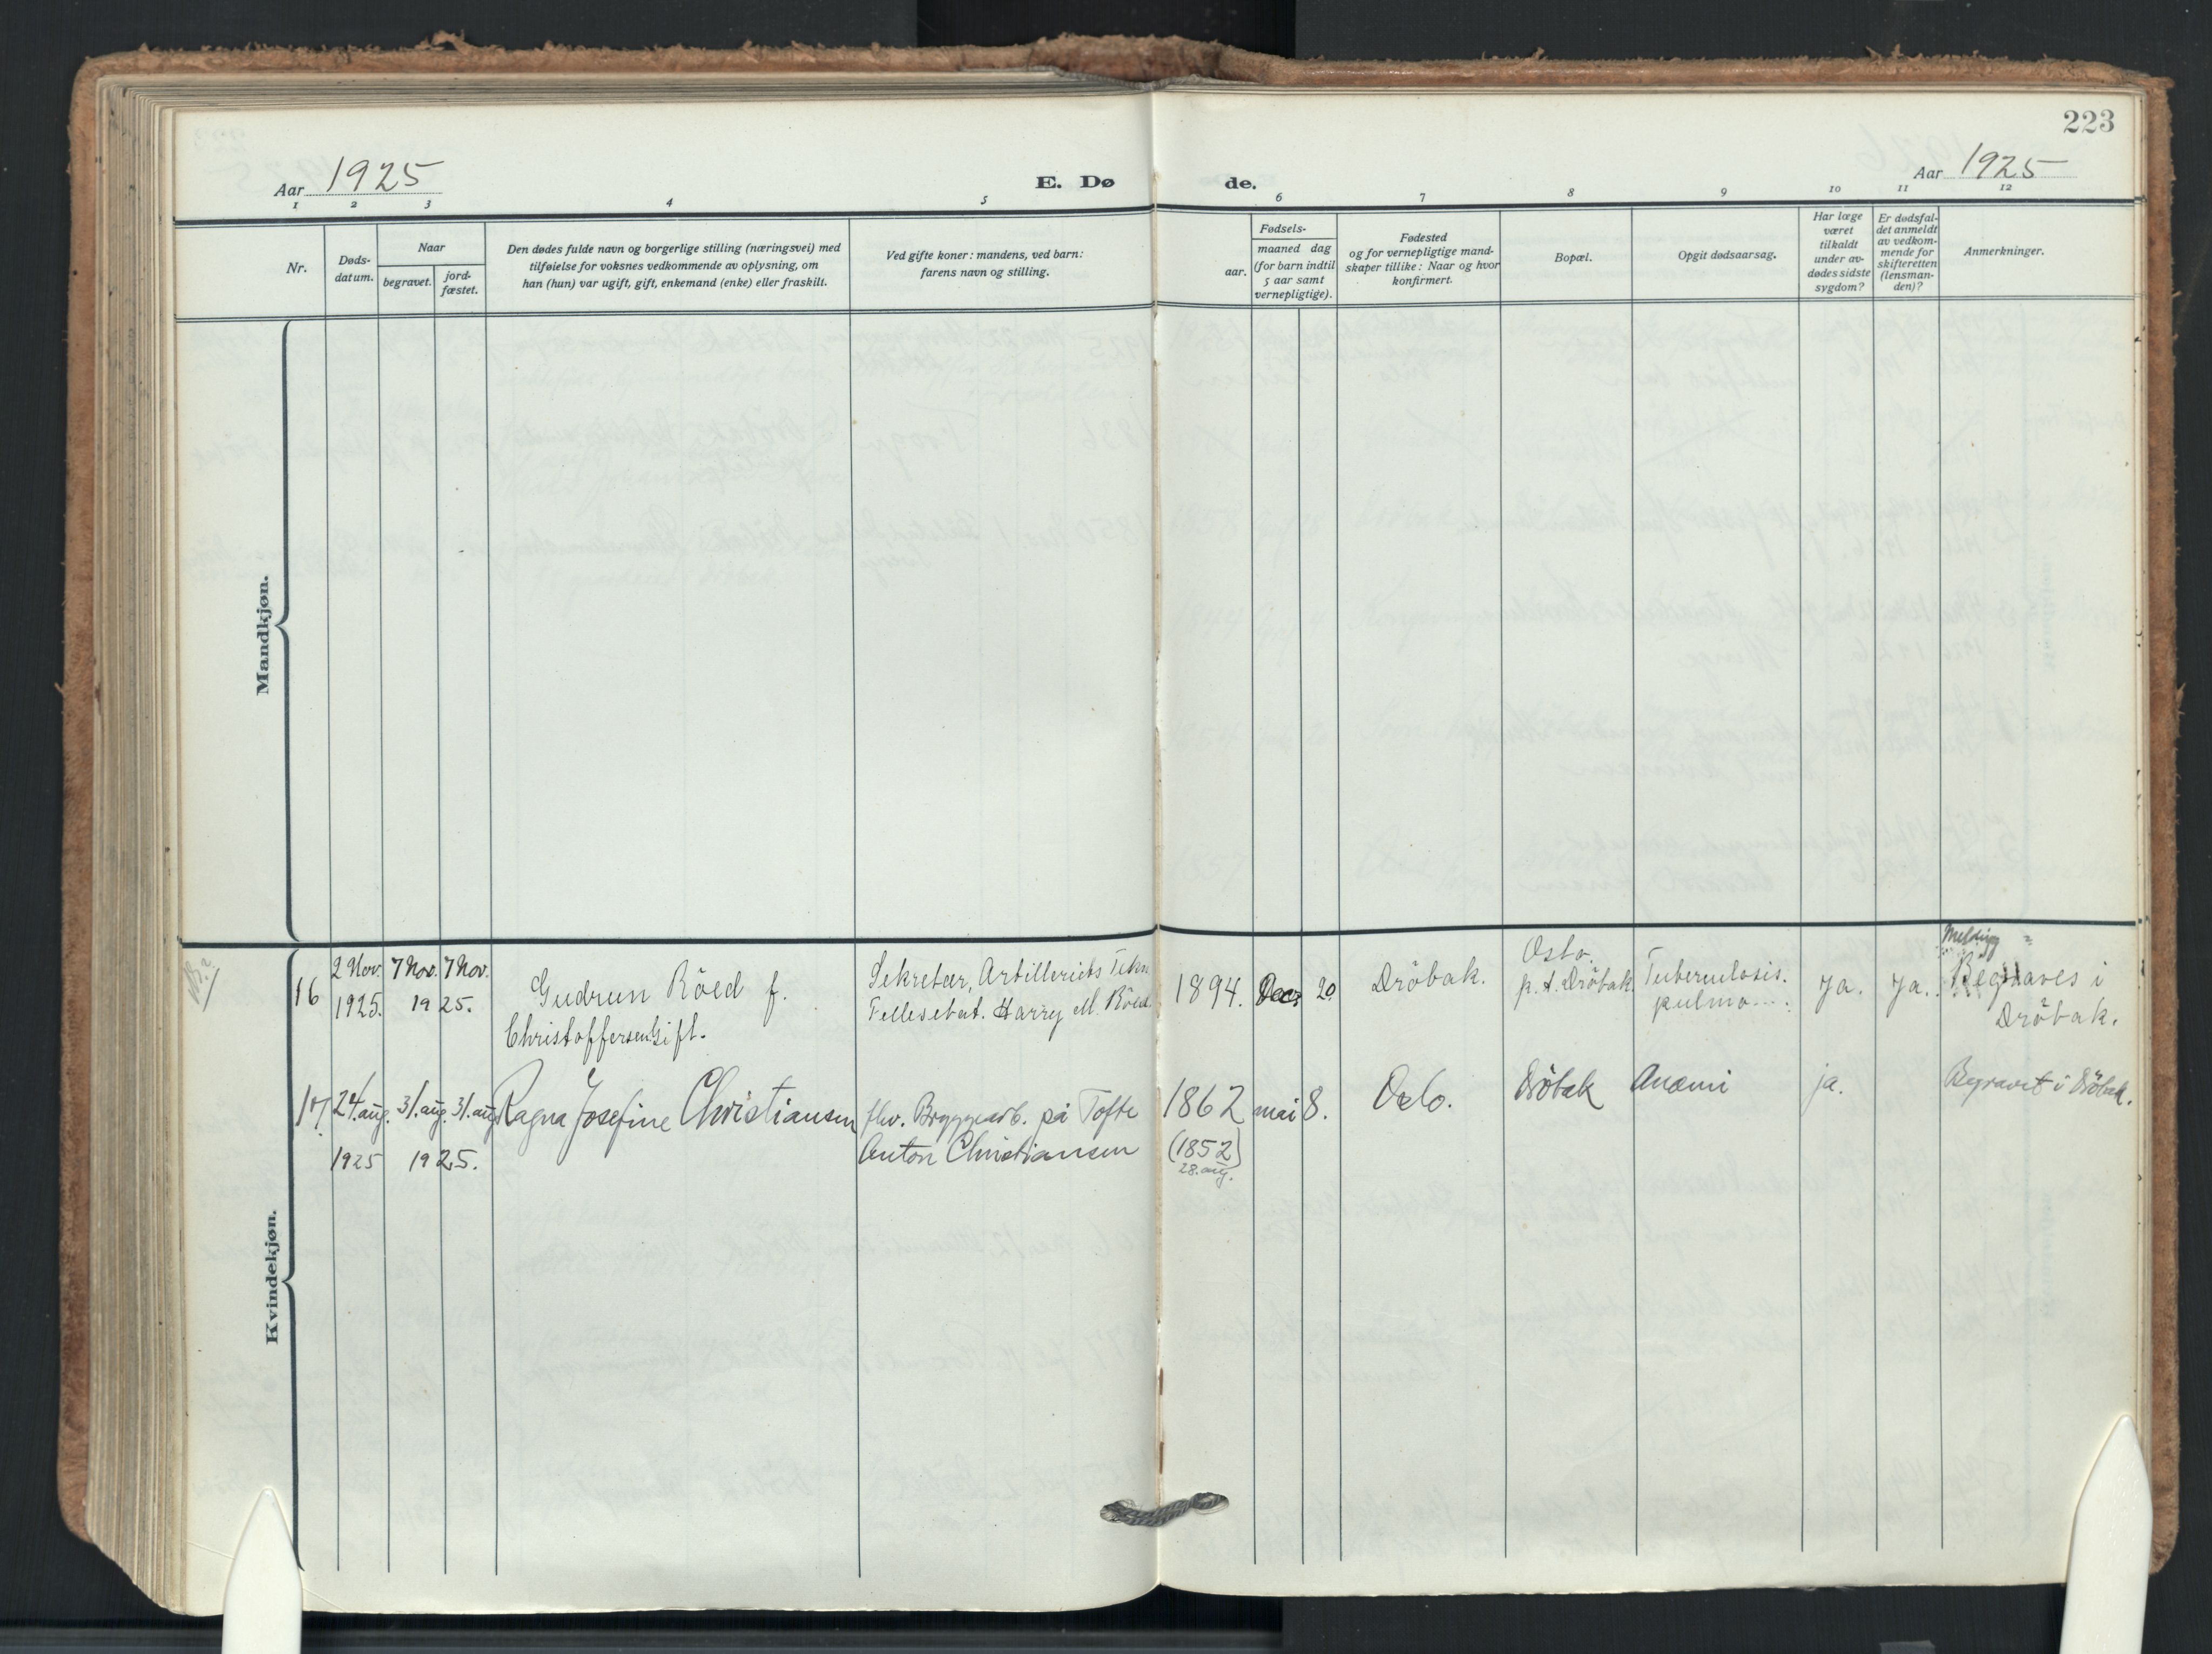 223
Aar 1925
E. Dø
de.
Aar 1925
1 2 3 4 5 6 7 8 9 10 11 12
Nr.
Døds-
datum.
Naar
begravet.
jord-
fæstet.
Den dødes fulde navn og borgerlige stilling (næringsvei) med
tilføielse for voksnes vedkommende av oplysning, om
han (hun) var ugift, gift, enkemand (enke) eller fraskilt.
Ved gifte koner: mandens, ved barn:
farens navn og stilling.
Fødsels-
aar.
maaned dag
(for barn indtil
5 aar samt
vernepligtige).
Fødested
og for vernepligtige mand-
skaper tillike: Naar og hvor
konfirmert.
Bopæl.
Opgit dødsaarsag.
Har læge
været
tilkaldt
under av-
dødes sidste
sygdom?
Er dødsfal-
det anmeldt
av vedkom-
mende for
skifteretten
(lensman-
den)?
Anmerkninger.
Mandkjøn.
Kvindekjøn.
16
2 Nov.
1925.
7 Nov. 7 Nov.
1925.
Gudrun Röed f.
Christoffersen. Gift.
Sekretær, Artilleriets Tekn.
Harry M. Röed
1894.
Decr
20.
Dröbak.
Oslo.
p.t. Dröbak.
Tuberculosis.
pulmo...
Ja.
Ja.
Begraves i
Dröbak.
17.
24/aug.
1925
31.aug. 31.aug
1925.
Ragna Josefine Christiansen
fhv. Bryggearb. på Tofte
Anton Christiansen
1862
(1852)
28. aug.
mai
8.
Oslo.
Dröbak
Anæmi
ja.
Begravet i Dröbak.